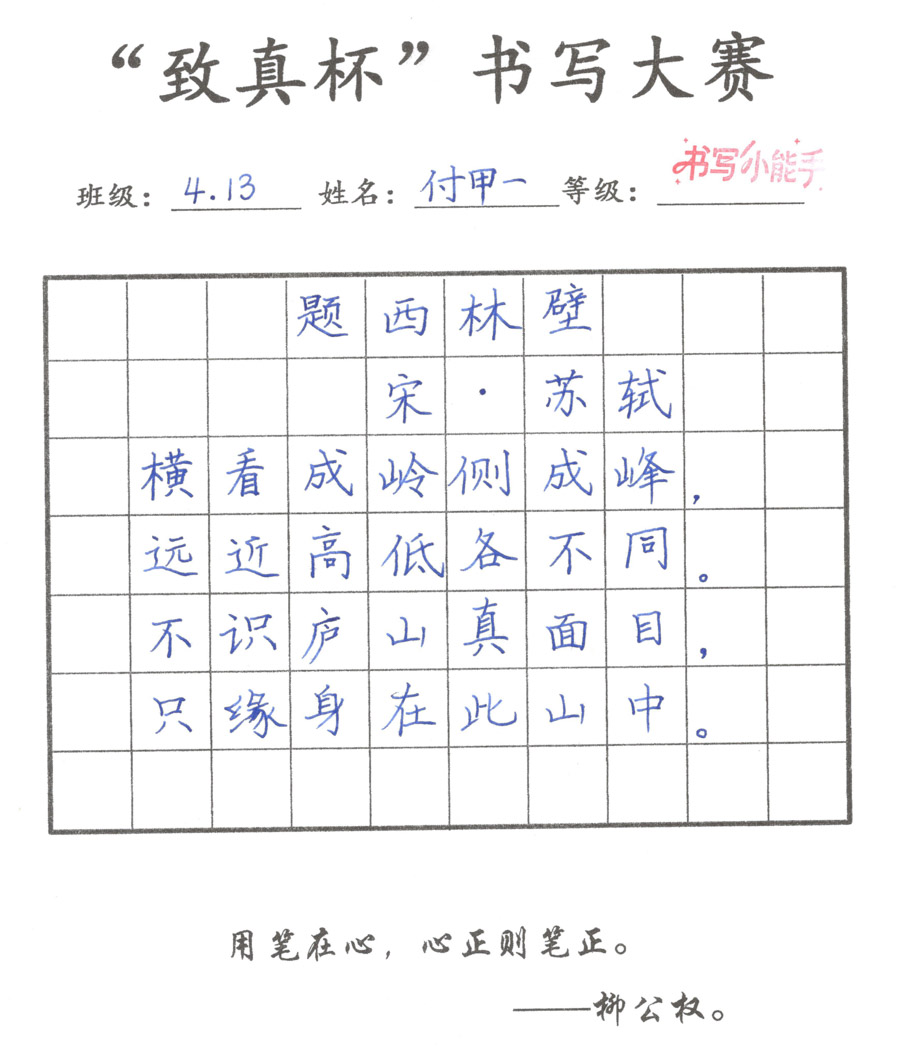 “致真杯”书写大赛
班级：4.13 姓名：付甲一 等级：书写小能手
题西林壁
宋·苏轼
横看成岭侧成峰，
远近高低各不同。
不识庐山真面目，
只缘身在此山中。
用笔在心，心正则笔正。
——柳公权。